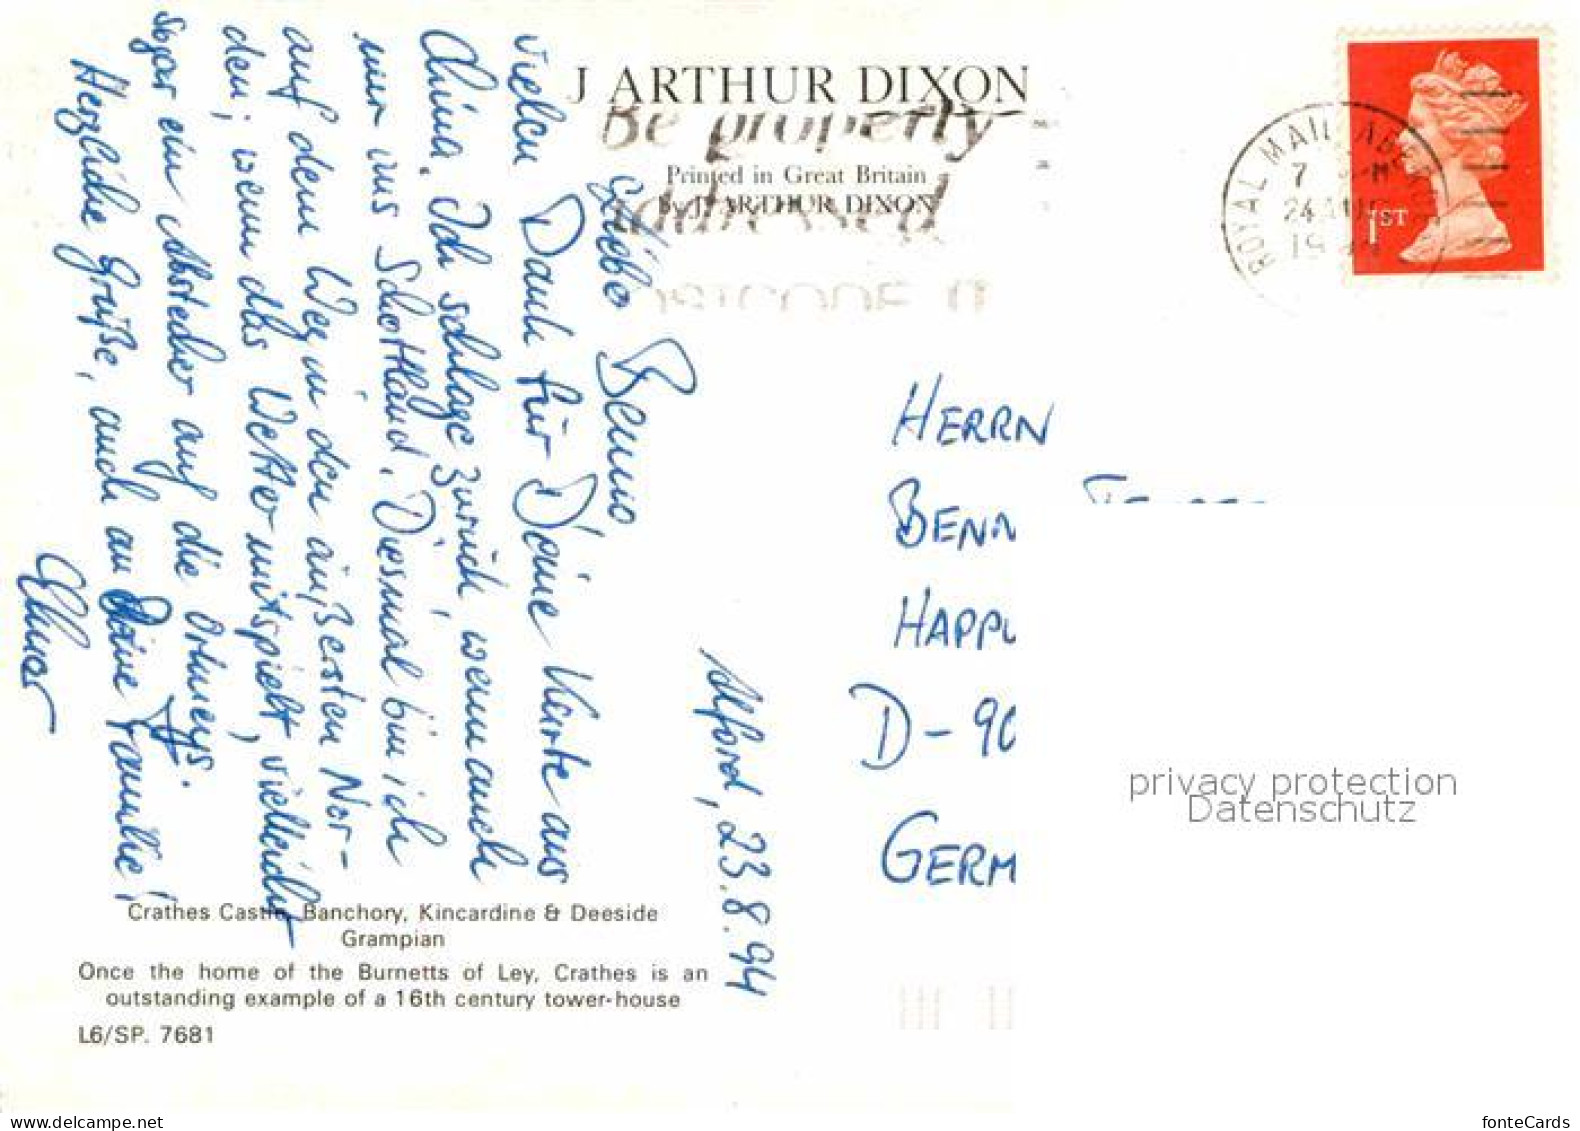 J ARTHUR DIXON
Be properly
addressed
Printed in Great Britain
by J. ARTHUR DIXON
ROYAL MAIL ABERDEEN
7
24 AUG
19
1ST
Alford, 23.8.94
Liebe Benno,
vielen Dank für Deine Karte aus
China. Ich schlage zurück, wenn auch
nur aus Schottland. Diesmal bin ich
auf dem Weg in den äußersten Nor-
den; wenn das Wetter mitspielt, vielleicht
sogar ein Abstecher auf die Orkneys.
Herzliche Grüße, auch an Deine Familie!
HERRN
BENN
HAPPU
D-90
GERM
privacy protection
Datenschutz
Crathes Castle, Banchory, Kincardine & Deeside
Grampian
Once the home of the Burnetts of Ley, Crathes is an
outstanding example of a 16th century tower-house
L6/SP. 7681
fonteCards